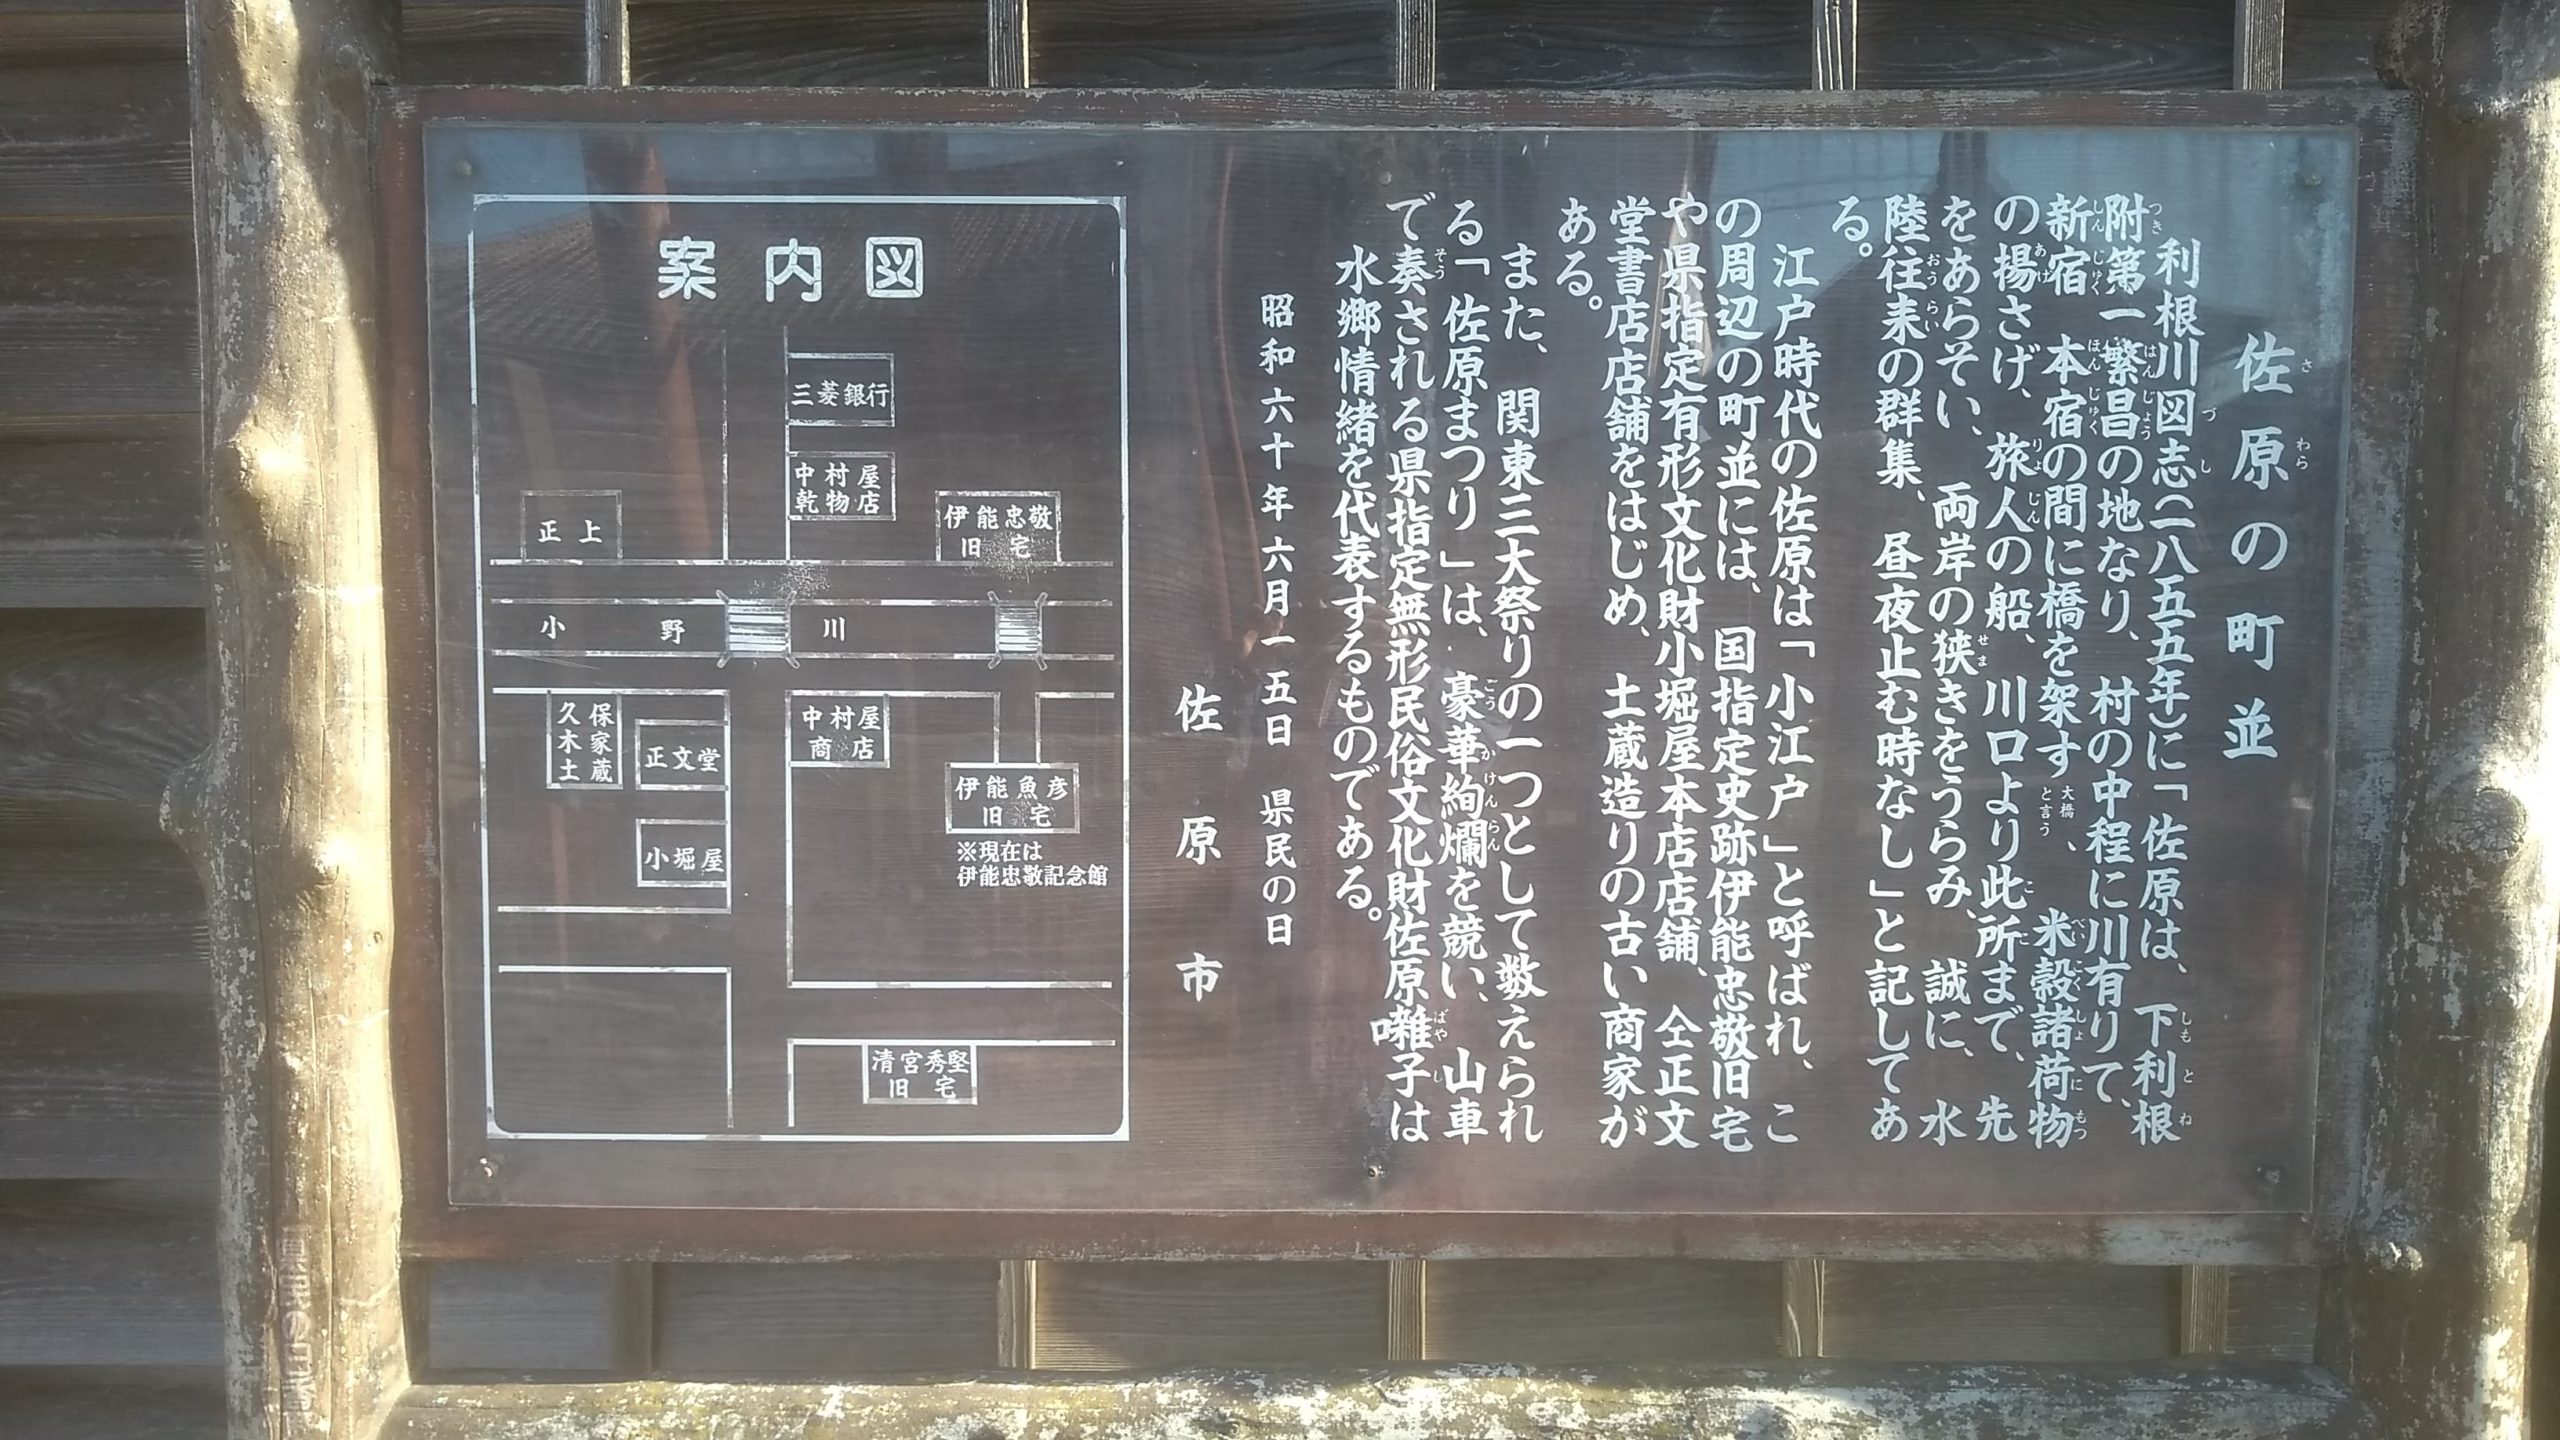 佐原の町並
利根川図志(一八五五年)に「佐原は、下利根
附第一繁昌の地なり、村の中程に川有りて、
新宿 本宿の間に橋を架す大橋と言う、米穀諸荷物
の揚さげ、旅人の船、川口より此所まで、先
をあらそい、両岸の狭きをうらみ、誠に、水
陸往来の群集、昼夜止む時なし」と記してあ
る。
江戸時代の佐原は「小江戸」と呼ばれ、こ
の周辺の町並には、国指定史跡伊能忠敬旧宅
や県指定有形文化財小堀屋本店店舗、仝正文
堂書店店舗をはじめ、土蔵造りの古い商家が
ある。
また、関東三大祭りの一つとして数えられ
る「佐原まつり」は、豪華絢爛を競い、山車
で奏される県指定無形民俗文化財佐原囃子は
水郷情緒を代表するものである。
昭和六十年六月一五日 県民の日
佐原市
案内図
三菱銀行
中村屋
乾物店
正上
伊能忠敬
旧宅
小野川
久保
木家
土蔵
正文堂
小堀屋
中村屋
商店
伊能魚彦
旧宅
※現在は
伊能忠敬記念館
清宮秀堅
旧宅